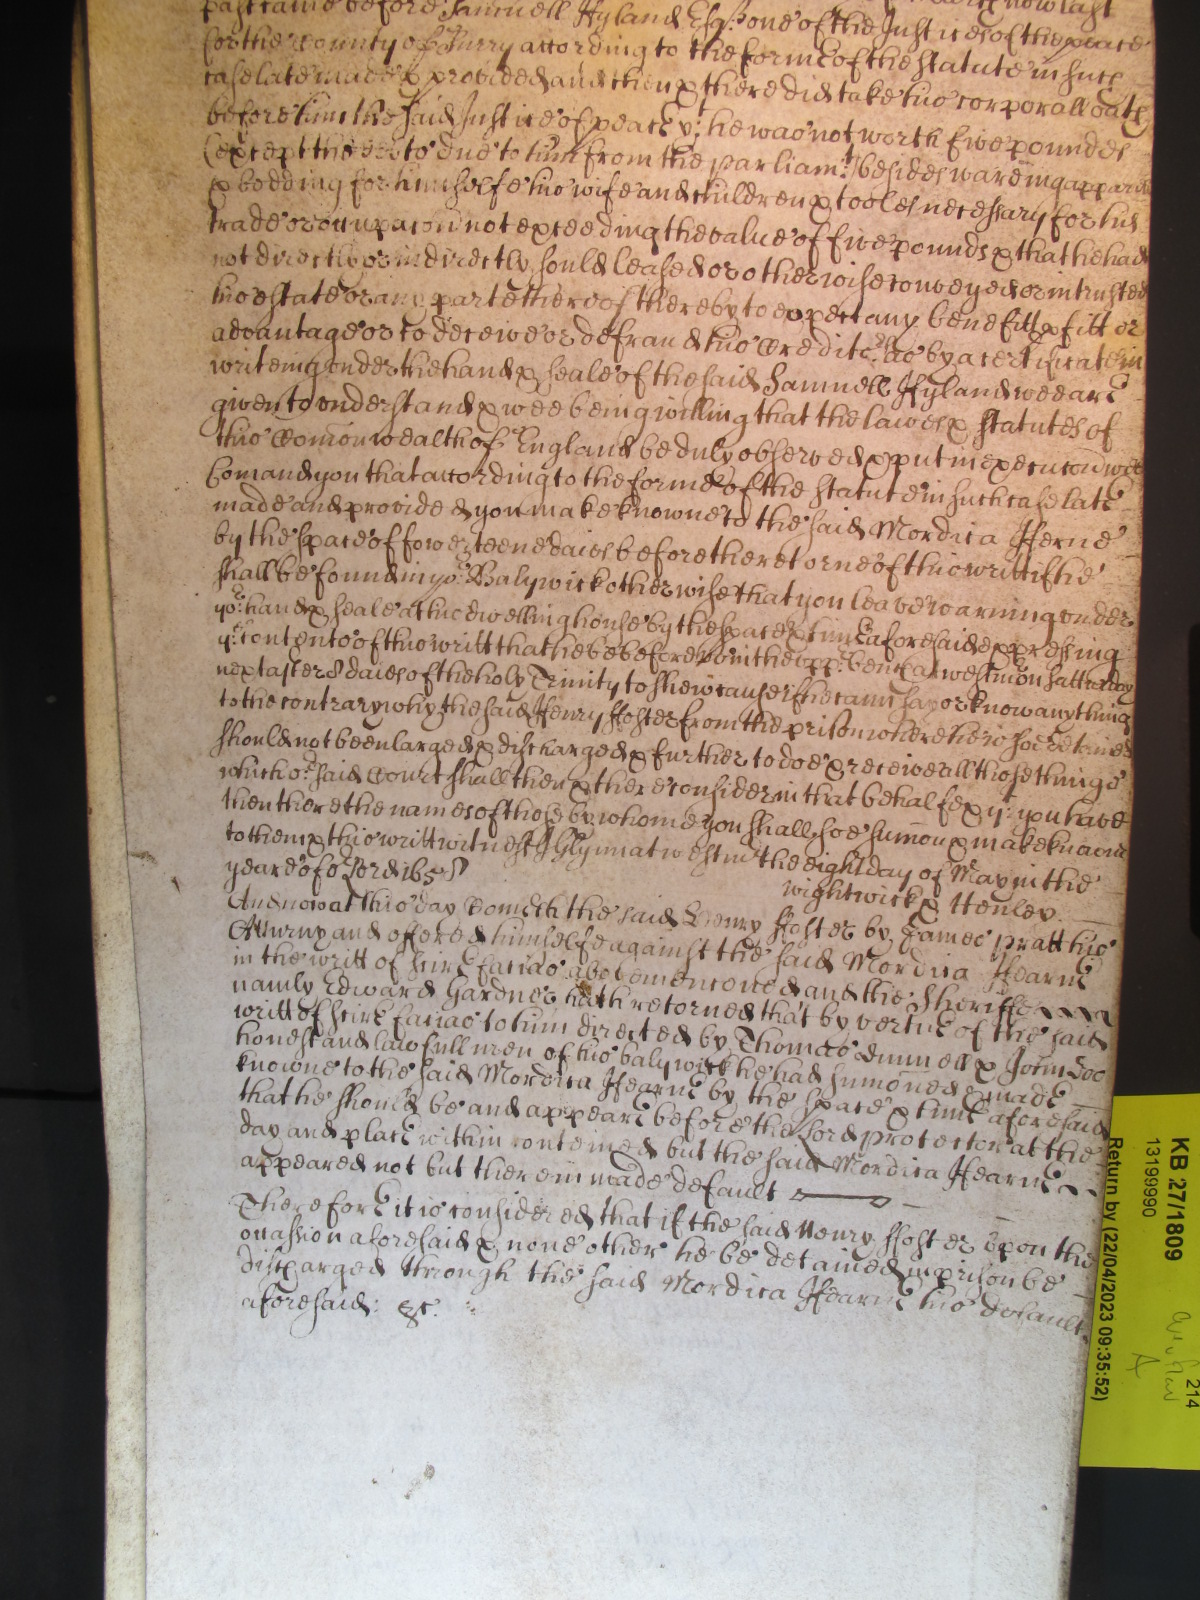 past came before Samuell Hyland Esqr one of the Justices of the peace
for the County of Surry according to the forme of the statute in such
case late made & provided and then & there did take his corporall oath
before him the said Justice of peace yt he was not worth five poundes
(except the debts due to him from the parliamt) besides wareing apparell
& bedding for himselfe his wife and children & tooles necessary for his
trade or occupacon not exceeding the value of five pounds & that he had
not directly or indirectly sould leased or otherwise conveyed or intrusted
his estate or any part thereof thereby to expect any benefitt pfitt or
advantage or to deceive or defraud his Creditors as by a certificate in
writeing under the hand & seale of the said Samuell Hyland wee are
given to understand & wee being willing that the lawes & statutes of
this Comonwealth of England be duly observed & put in execucon wee
Comand you that according to the forme of the statute in such case late
made and provided you make knowne to the said Mordica Hferne
by the space of fowerteene daies before the retorne of this writt if he
shall be found in yor Balywick otherwise that you leave warning under
yor hand & seale at his dwelling house by the space & time aforesaid expressing
ye contents of this writt that he be before us in the upper bench at westmon satturday
next after 8 daies of the holy Trinity to shew cause if he cann say or know any thing
to the contrary why the said Henry ffoster from the prison where he is soe retained
should not be enlarged & discharged & further to doe & receive all those things
which or said Court shall then & there consider in that behalfe & yt you have
then there the names of those by whome you shall soe sumon & make knowne
to them & this writt witnes J Glynn at westmr the eight day of May in the
yeare of or Lord 1658
wightwick & Henley
And now at this day Cometh the said Henry ffoster by James Pratt his
Atturny and offered himselfe against the said Mordica Hfearne
in the writt of scire facias abovemenconed and the Sheriffe
namly Edward Gardner hath retorned that by vertue of the said
writt of scire facias to him directed by Thomas Dunnell & John Doo
honest and lawfull men of his balywick he had sumoned & made
knowne to the said Mordica Hfearne by the space & time aforesaid
that he should be and appeare before the Lord protector at the
day and place within conteined but the said Mordica Hfearne
appeared not but therein made default
Therefore it is considered that if the said Henry ffoster upon the
occasion aforesaid & none other he be detained in prison be
discharged through the said Mordica Hfearne his default
aforesaid: &c.
KB 27/1809
13199990
Return by (22/04/2023 09:35:52)
214